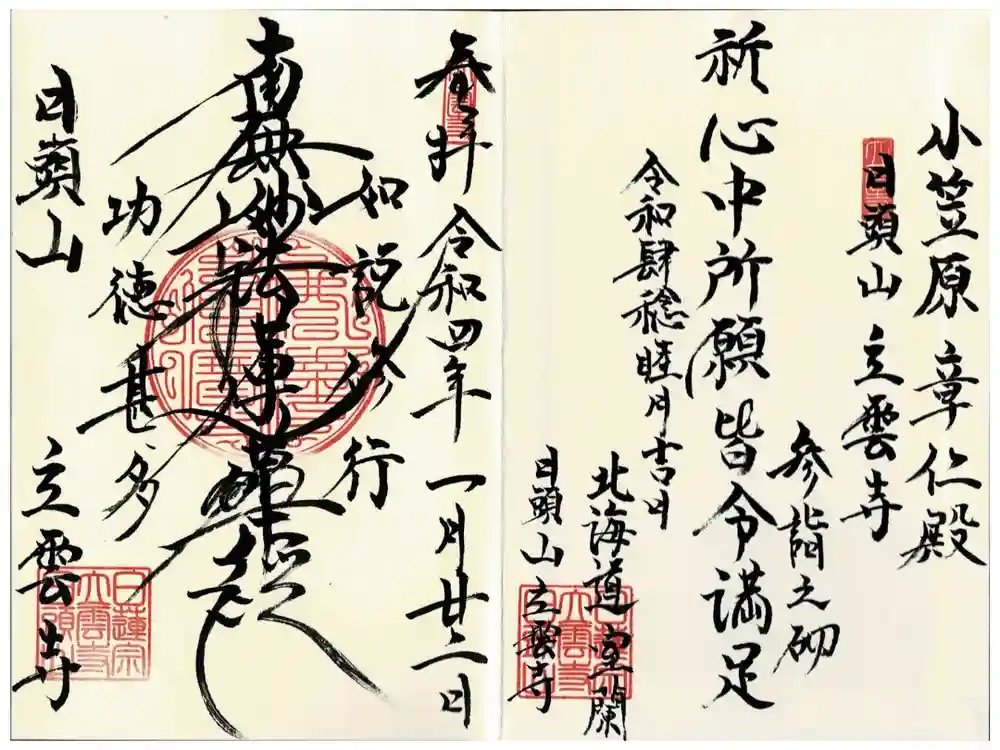 小笠原 章仁殿
日頭山 立雲寺
参詣之砌
祈心中所願皆令満足
令和肆稔睦月吉日
北海道室蘭
日頭山立雲寺
日蓮宗
立雲寺
日頭山
奉拝 令和四年一月廿二日
如説修行
南無妙法蓮華経
功徳甚多
日頭山 立雲寺
日蓮宗
立雲寺
日頭山